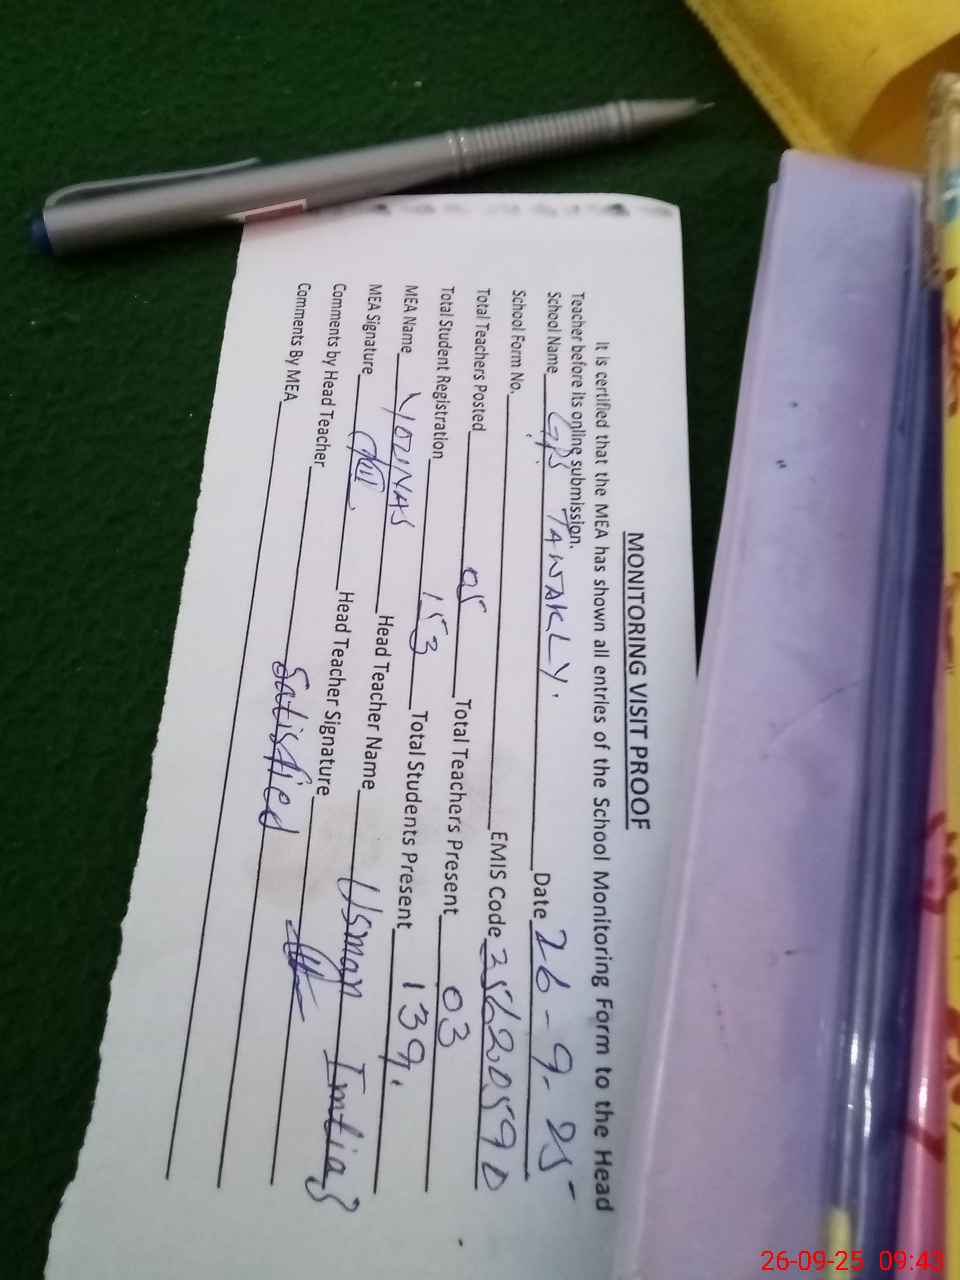 MONITORING VISIT PROOF
It is certified that the MEA has shown all entries of the School Monitoring Form to the Head
Teacher before its online submission.
School Name GPS TAWAKLY. Date 26-9-25
School Form No. EMIS Code 35620590
Total Teachers Posted 05 Total Teachers Present 03
Total Student Registration 153 Total Students Present 139.
MEA Name Head Teacher Name Usman Imtiaz
MEA Signature Head Teacher Signature
Comments by Head Teacher Satisfied
Comments By MEA
26-09-25 09:43